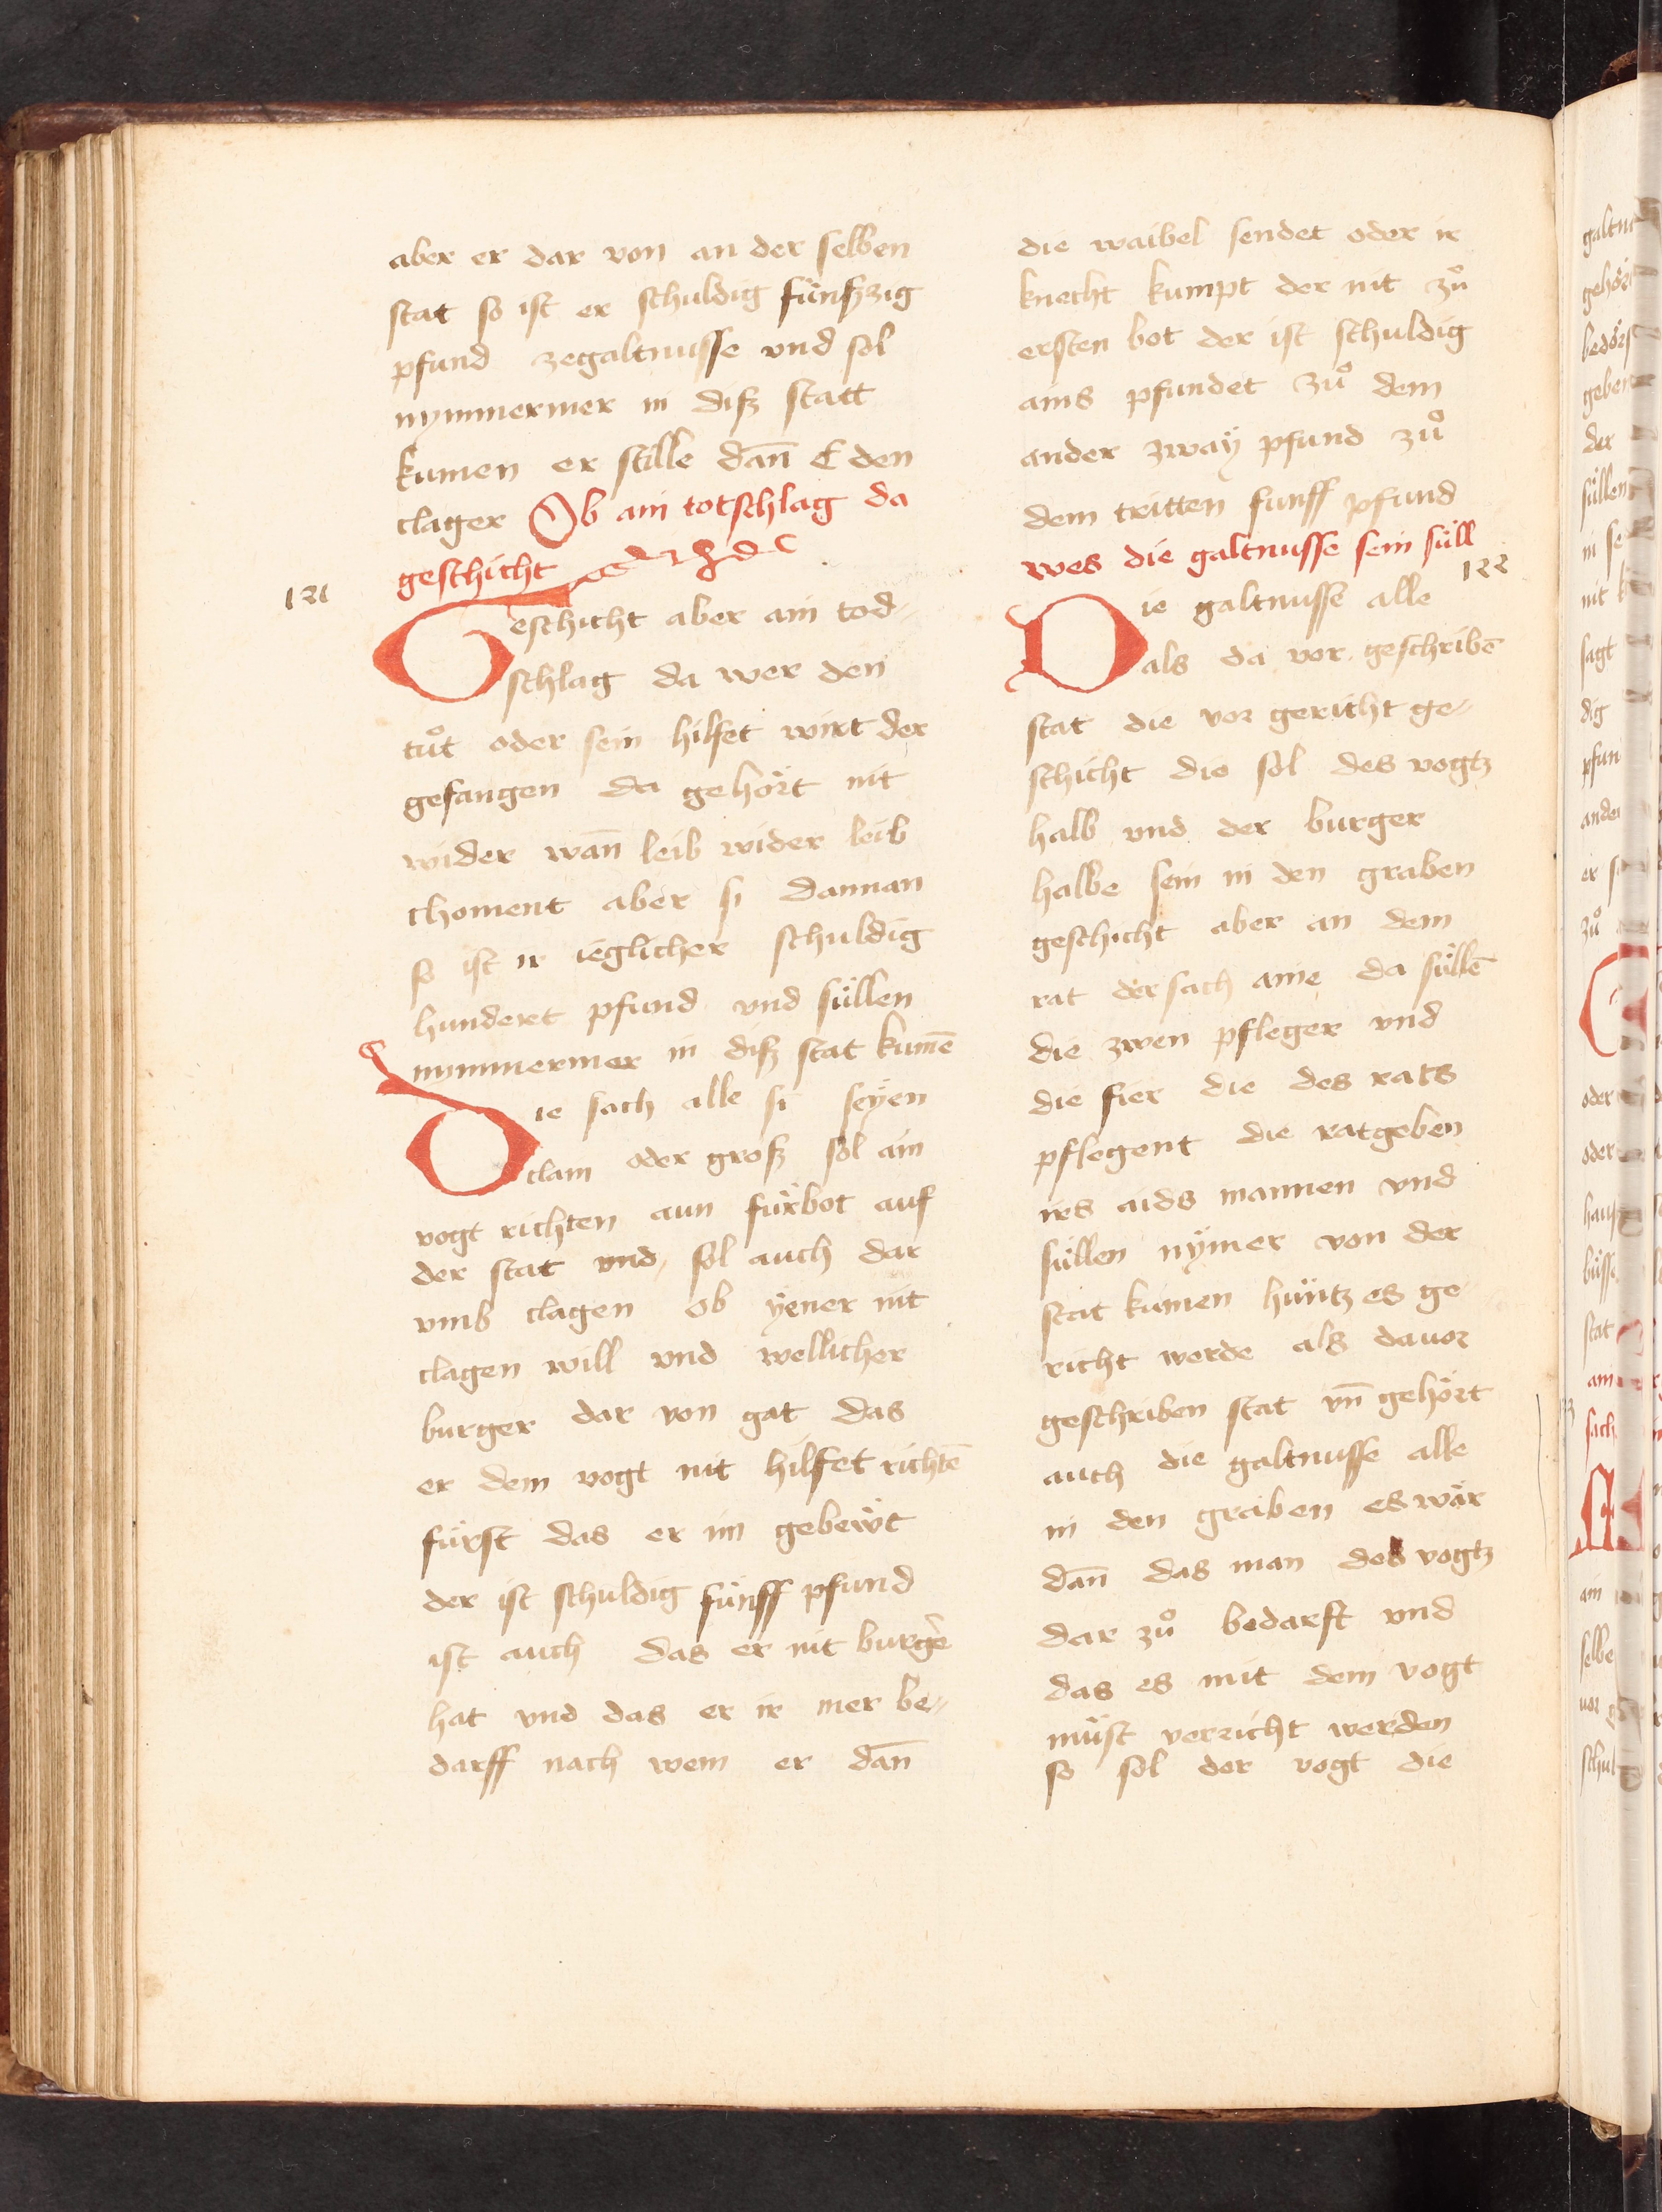 aber er dar von an der selben
stat so ist er schuldig fünfzig
pfund zegaltnusse vnd sol
nymmermer in disz statt
kumen er stille dan̄ E den
clager Ob ain totschlag da
geschicht
121
Geschicht aber ain tod-
schlag da wer den
tuͦt oder sein hilfet wirt der
gefangen da gehört nit
wider wan̄ leib wider leib
choment aber si dannan
so ist ir ieglicher schuldig
hundert pfund vnd süllen
nymmermer in disz stat kum̄e
Die sach alle si seÿen
clain oder grosz sol ain
vogt richten aun fürbot auf
der stat vnd sol auch dar
vmb clagen ob ÿener nit
clagen will vnd wellicher
burger dar von gat das
er dem vogt nit hilfet richtē
fürst das er im gebewt
der ist schuldig fünff pfund
ist auch das er nit burgē
hat vnd das er ir mer be-
darff nach wem er dan̄
die waibel sendet oder ir
knecht kumpt der nit zuͦ
ersten bot der ist schuldig
ains pfundet zuͦ dem
ander zwaÿ pfund zuͦ
dem tritten funff pfund
wes die galtnusse sein süll
122
Die galtnusse alle
als da vor geschribē
stat die vor gericht ge-
schicht die sol des vogtz
halb vnd der burger
halbe sein in den graben
geschicht aber an dem
rat der sach aine da süllē
die zwen pfleger vnd
die fier die des rats
pflegent die ratgeben
irs aids mannen vnd
süllen nÿmer von der
stat kumen hüntz es ge-
richt werde als dauor
geschriben stat vn̄ gehört
auch die galtnusse alle
in den graben es wär
dan̄ das man des vogtz
dar zuͦ bedarft vnd
das es mit dem vogt
müst verricht werden
so sol der vogt die